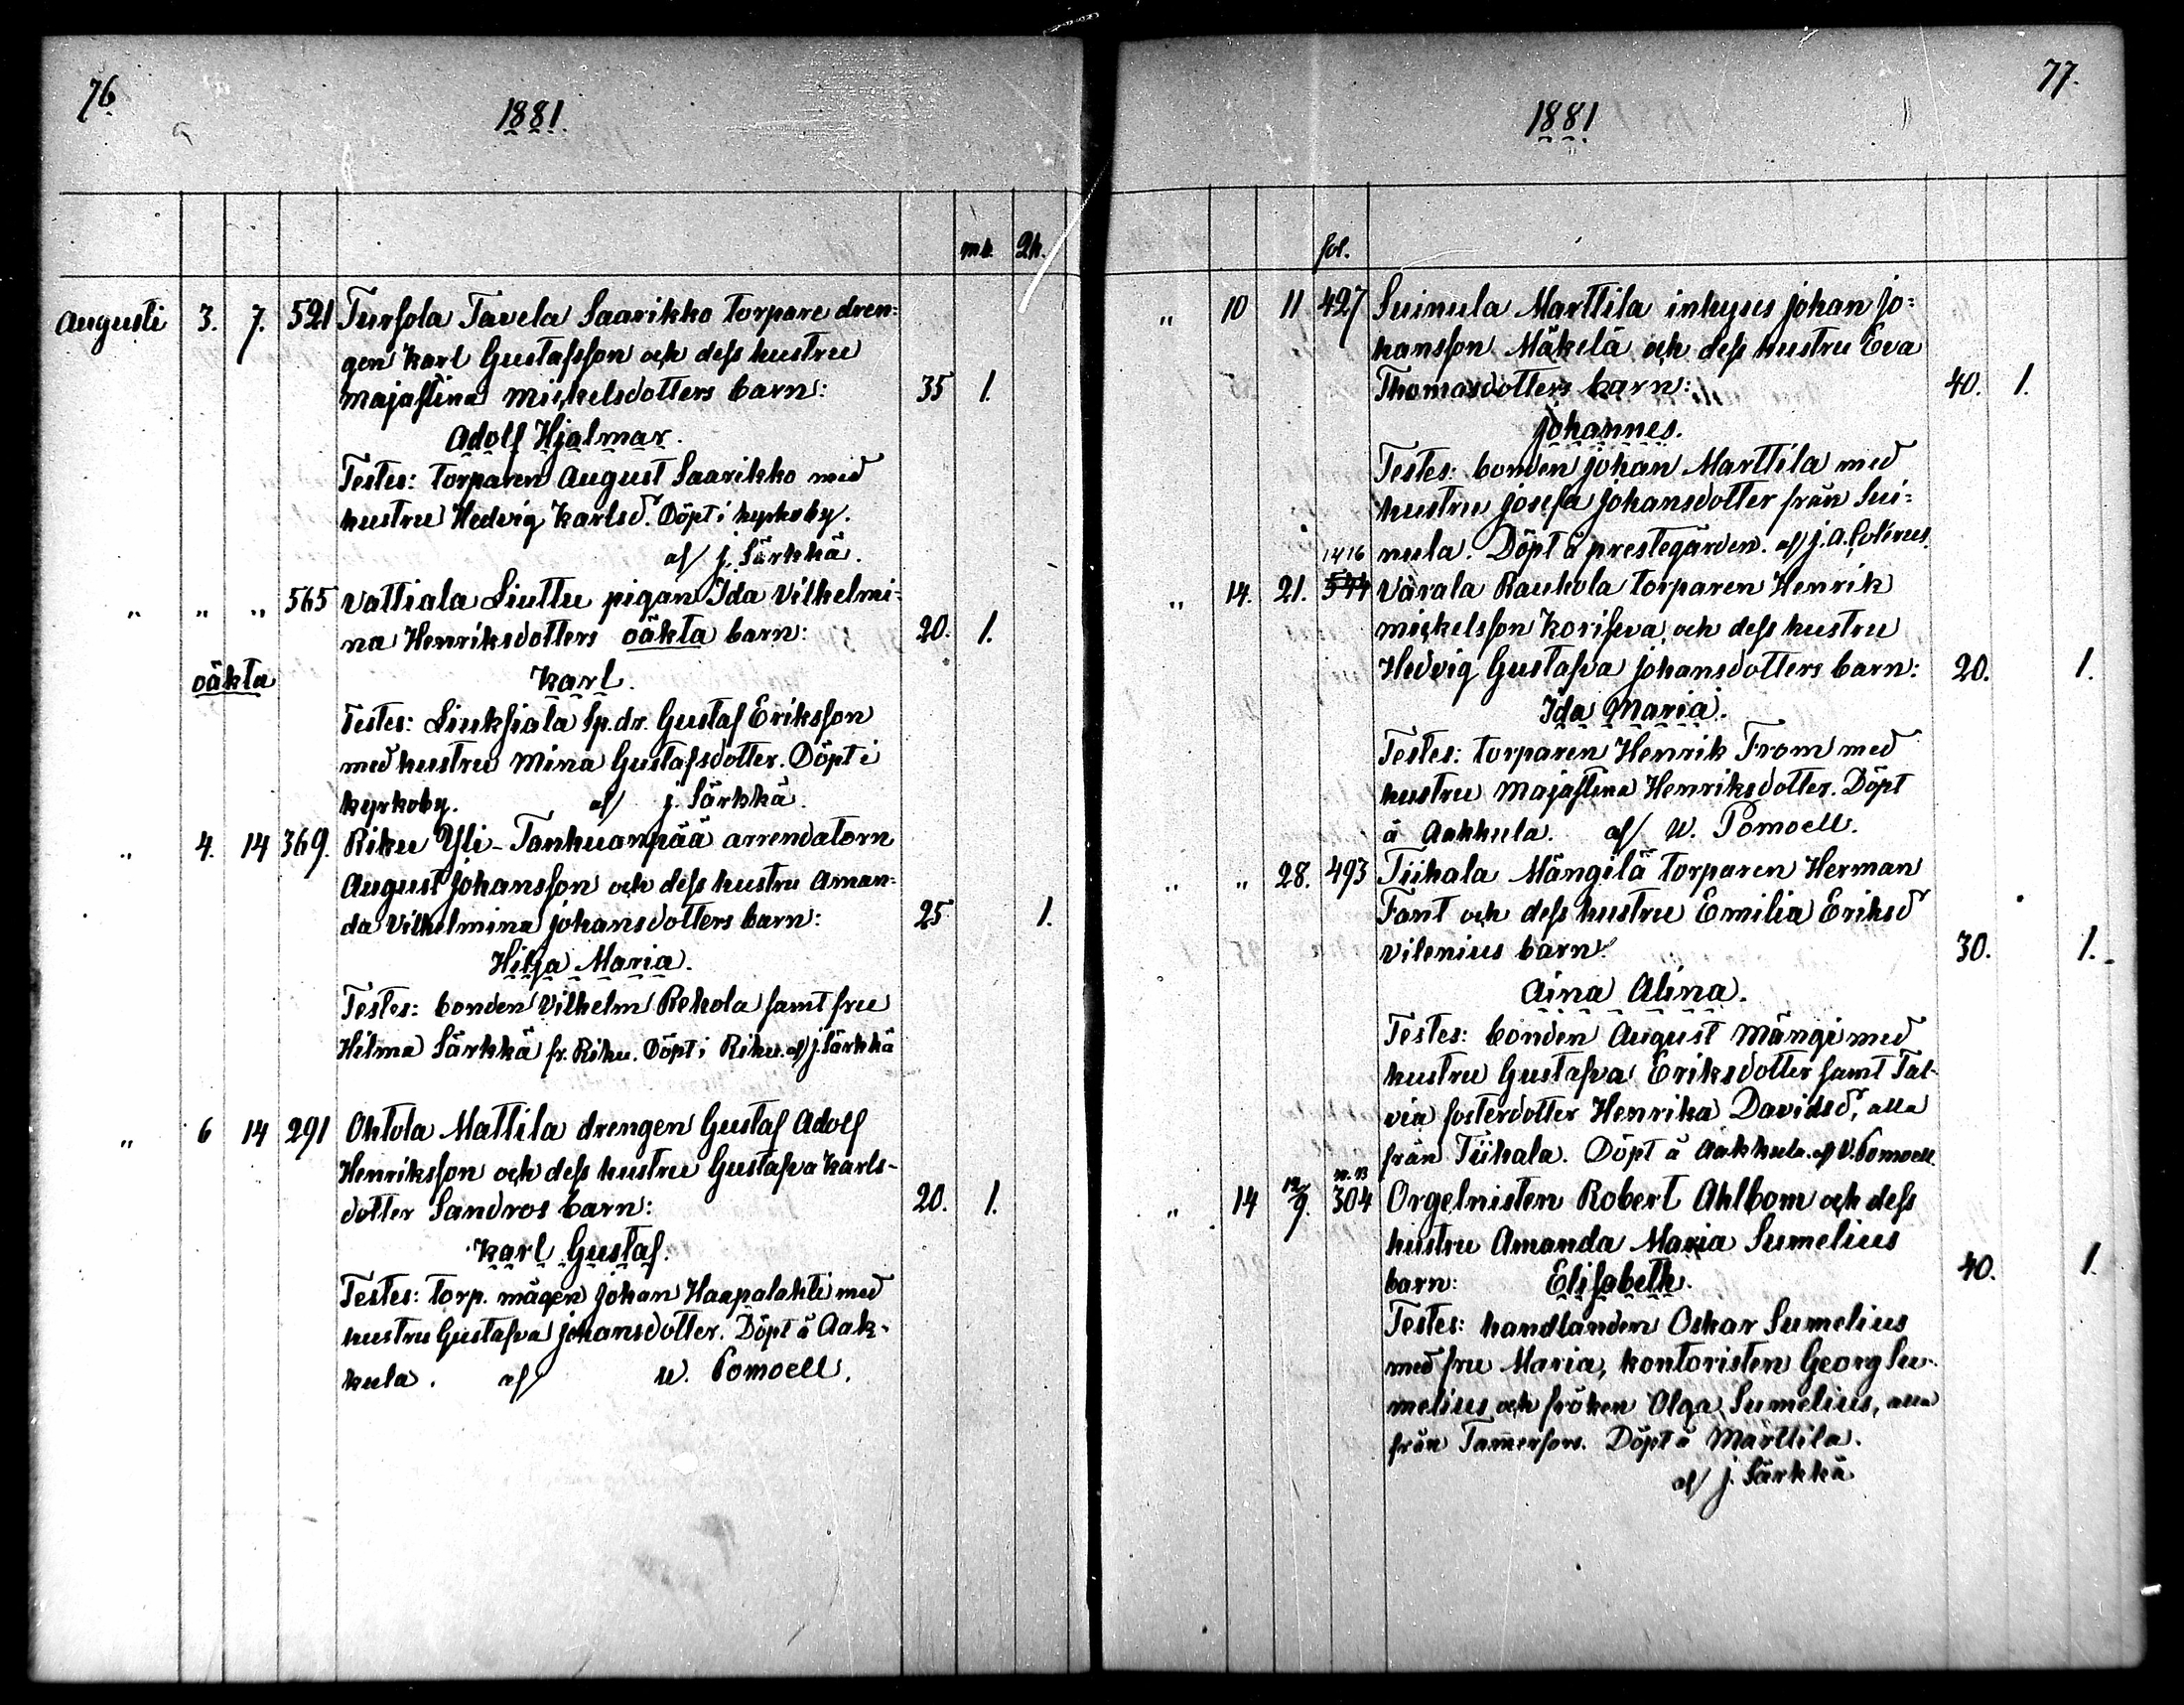 76.
1881.
mk. Qk.
Augusti 3. 7. 521 Tursola Tavela Saarikko torpare dren-
gen Karl Gustafsson och dess hustru
Majastina Mickelsdotters barn: 35 1.
Adolf Hjalmar.
Testes: torparen August Saarikko med
hustru Hedvig Karlsd. Döpt i kyrkoby.
af J. Särkkä.
" " " 565 Vattiala Liuttu pigan Ida Vilhelmi-
na Henriksdotters oäkta barn: 20. 1.
oäkta Karl.
Testes: Liuksiala sp.dr. Gustaf Eriksson
med hustru Mina Gustafsdotter. Döpt i
kyrkoby. af J. Särkkä.
" 4. 14 369. Riku Yli-Tanhuanpää arrendatorn
August Johansson och dess hustru Aman-
da Vilhelmina Johansdotters barn: 25 1.
Hilja Maria.
Testes: bonden Vilhelm Rekola samt fru
Hilma Särkkä fr. Riku. Döpt i Riku. af J. Särkkä
" 6 14 291 Ohtola Mattila drengen Gustaf Adolf
Henriksson och dess hustru Gustafva Karls-
dotter Sandros barn: 20. 1.
Karl Gustaf.
Testes: torp. mågen Johan Haapalahti med
hustru Gustafva Johansdotter. Döpt å Aak-
kula. af W. Pomoell.
77.
1881
fol.
" 10 11 427 Suinula Marttila inhyses Johan Jo-
hansson Mäkelä och dess hustru Eva
Thomasdotters barn: 40. 1.
Johannes.
Testes: bonden Johan Marttila med
hustru Josefa Johansdotter från Sui-
nula. Döpt å prestegården. af J. A.
1416
" 14. 21. 544 Värala Raukola torparen Henrik
Mickelsson Korifva och dess hustru
Hedvig Gustafva Johansdotters barn: 20. 1.
Ida Maria.
Testes: torparen Henrik From med
hustru Majastina Henriksdotter. Döpt
å Aakkula. af W. Pomoell.
" " 28. 493 Tiihala Mängilä torparen Herman
Fant och dess hustru Emilia Eriksd
Vilenius barn: 30. 1.
Aina Alina.
Testes: bonden August Mängi med
hustru Gustafva Eriksdotter samt Tal-
via fosterdotter Henrika Davidsd, alla
från Tiihala. Döpt å Aakkula. af W. Pomoell.
" 14 12/9. 304 Orgelnisten Robert Ahlbom och dess
hustru Amanda Maria Sumelius
barn: Elisabeth. 40. 1.
Testes: handlanden Oskar Sumelius
med fru Maria, kontoristen Georg Su-
melius och fröken Olga Sumelius, alla
från Tammerfors. Döpt å Marttila.
af J. Särkkä